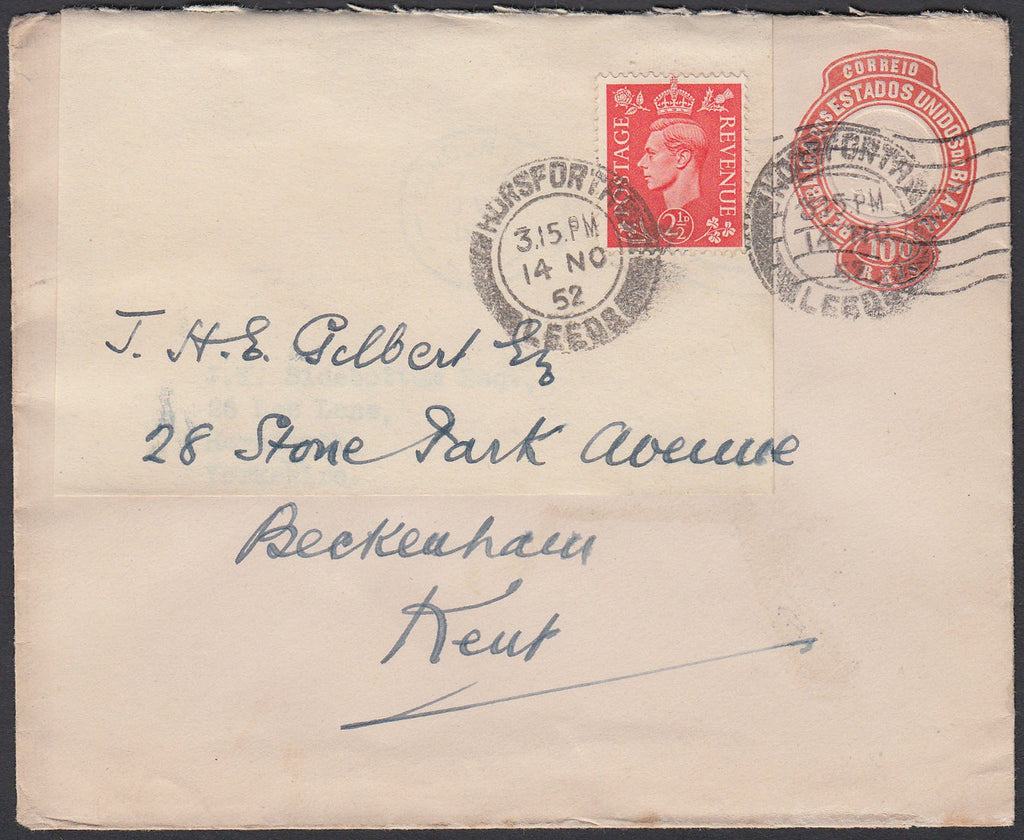 CORREIO
DOS ESTADOS UNIDOS DO BRAZIL
100
POSTAGE REVENUE
2½D
HORSFORTH
3.15.PM
14 NO
52
LEEDS
HORSFORTH
3.15.PM
14 NO
52
LEEDS
J. H. E. Gilbert Esq
28 Stone Park Avenue
Beckenham
Kent